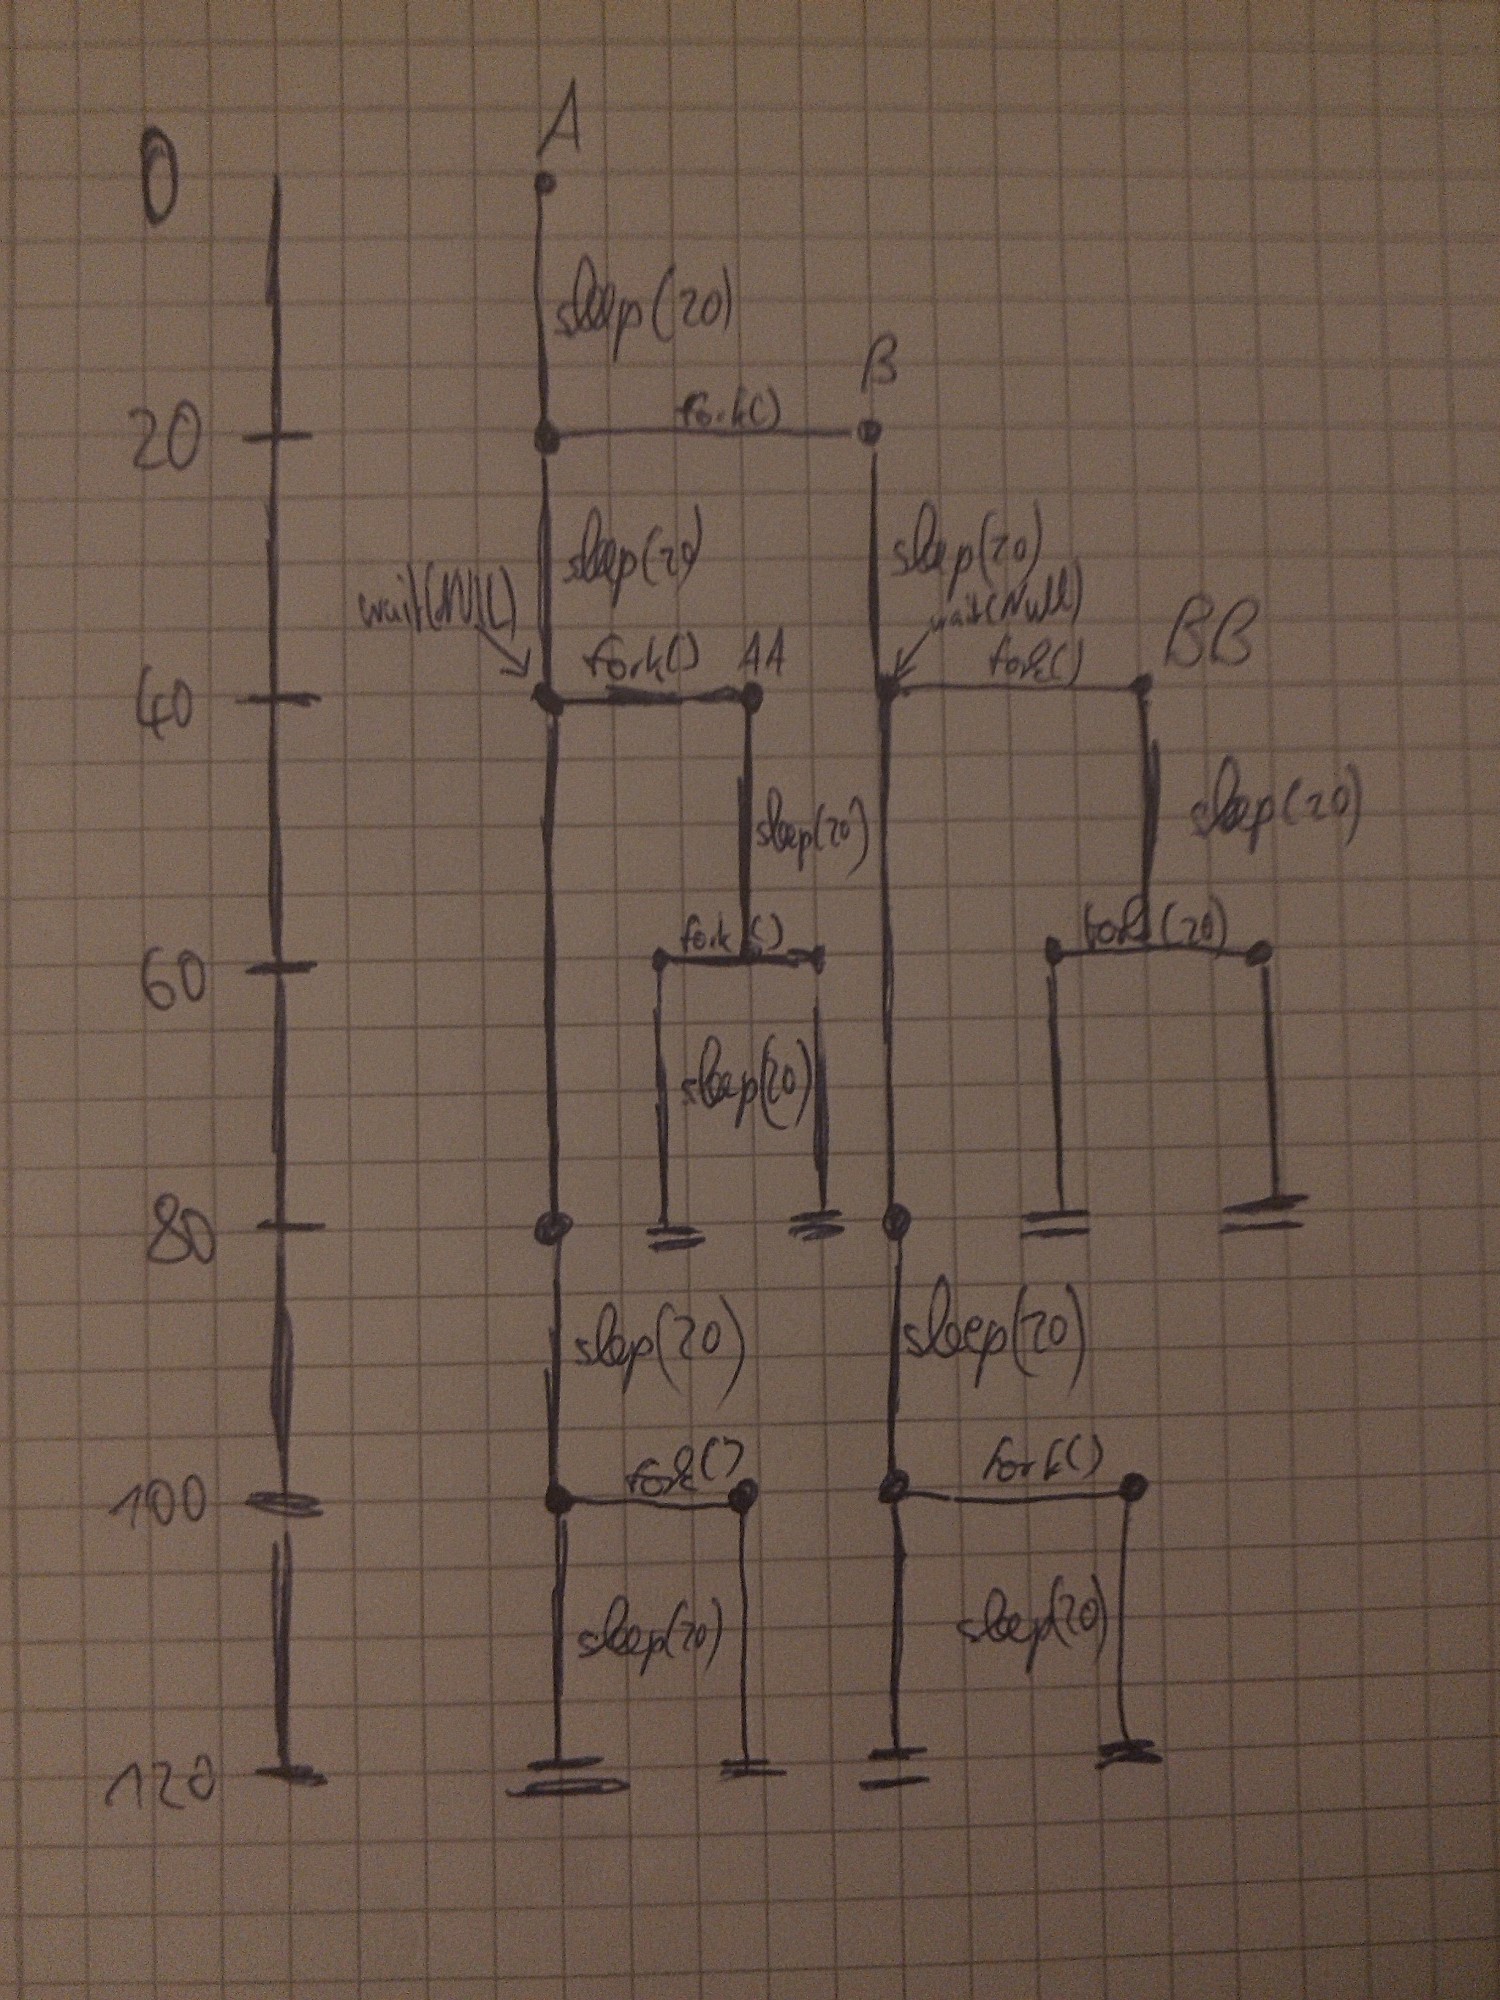 A
0
sleep(20)
B
fork()
20
sleep(20)
sleep(20)
wait(NULL)
wait(Null)
fork()
AA
fork()
BB
40
sleep(20)
sleep(20)
fork()
fork(20)
60
sleep(20)
80
slep(20)
sleep(20)
fork()
fork()
100
sleep(20)
sleep(20)
120